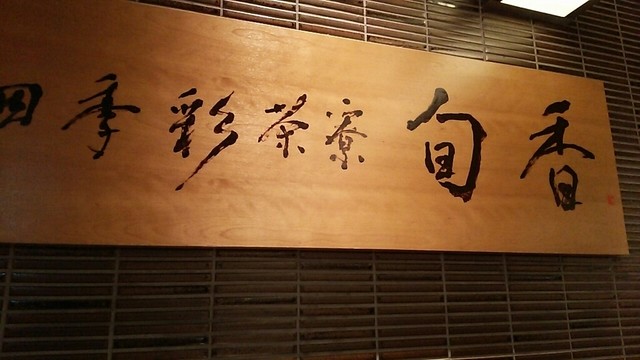 四季彩茶寮 旬香